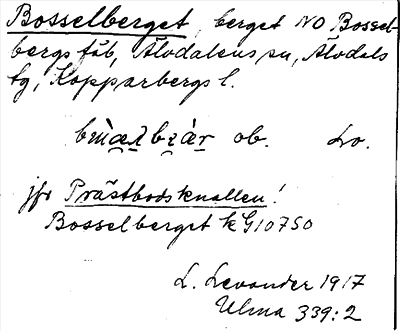 Bosselberget, berget NO Bossel-
bergs fäb, Älvdalens sn, Älvdals
tg, Kopparbergs l.
ob. Lo.
jfr Prästbodsknallen!
Bosselberget k G10750
L. Levander 1917
Ulma 339:2